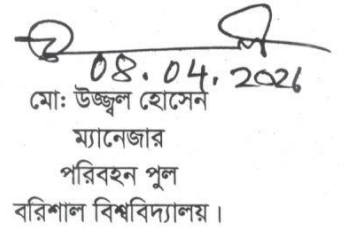 08.04.2026
মোঃ উজ্জ্বল হোসেন
ম্যানেজার
পরিবহন পুল
বরিশাল বিশ্ববিদ্যালয়।